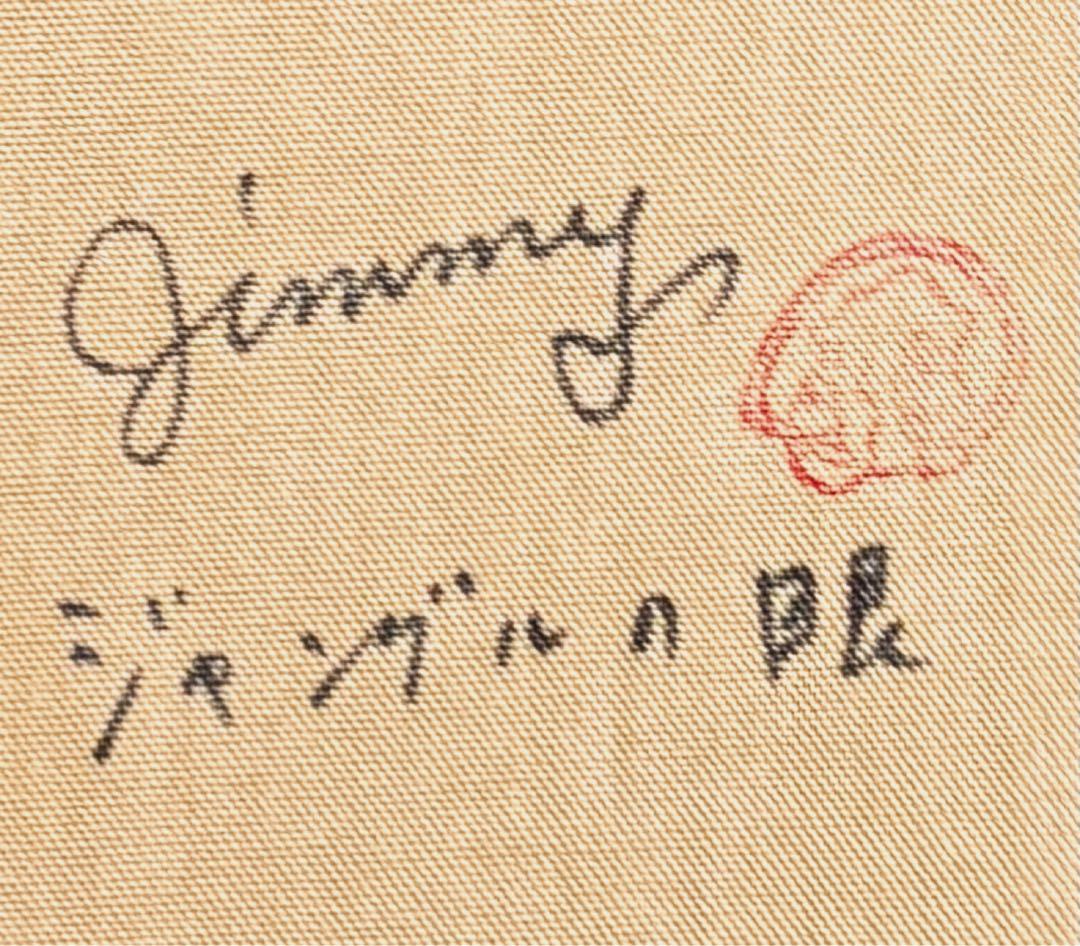 Jimmy
ジャングルの眼